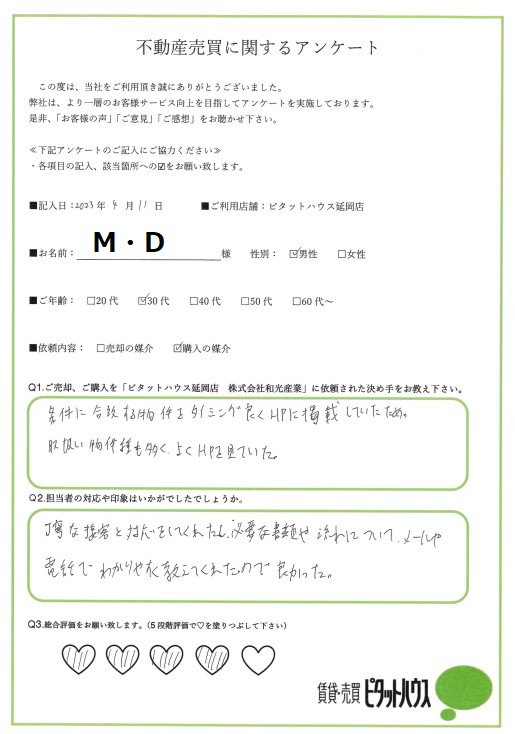 不動産売買に関するアンケート
この度は、当社をご利用頂き誠にありがとうございました。
弊社は、より一層のお客様サービス向上を目指してアンケートを実施しております。
是非、「お客様の声」「ご意見」「ご感想」をお聴かせ下さい。
≪下記アンケートのご記入にご協力ください≫
・各項目の記入、該当箇所への☑をお願い致します。
■記入日：2023年 4 月 11 日 ■ご利用店舗：ピタットハウス延岡店
■お名前： M・D 様 性別： ☑男性 □女性
■ご年齢： □20代 ☑30代 □40代 □50代 □60代～
■依頼内容： □売却の媒介 ☑購入の媒介
Q1.ご売却、ご購入を「ピタットハウス延岡店 株式会社和光産業」に依頼された決め手をお教え下さい。
条件に合致する物件をタイミング良くHPに掲載していたため。
取扱い物件種も多く、よくHPを見ていた。
Q2.担当者の対応や印象はいかがでしたでしょうか。
丁寧な接客と対応をしてくれたし、必要な書類や流れについて、メールや
電話でわかりやすく教えてくれたので良かった。
Q3.総合評価をお願い致します。（5段階評価で♡を塗りつぶして下さい）
賃貸・売買 ピタットハウス